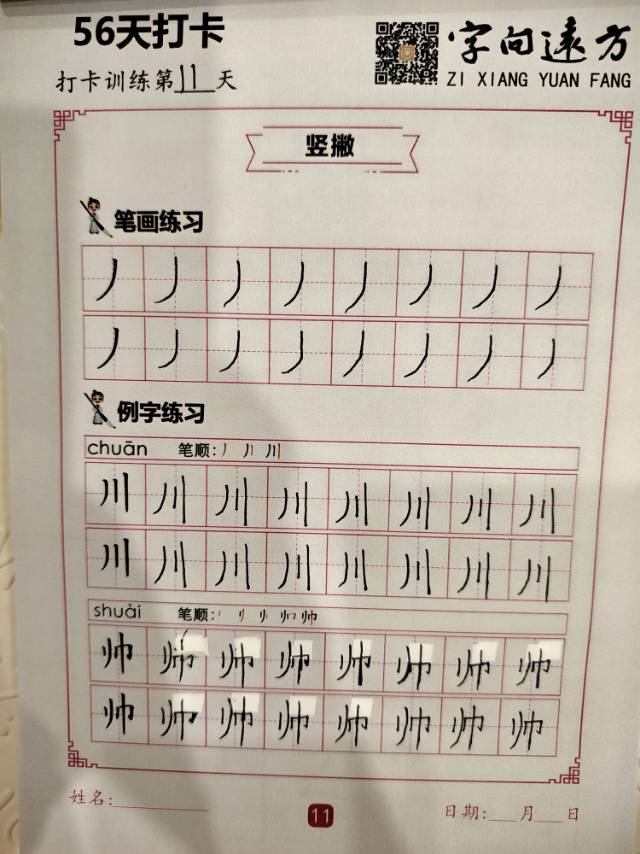 56天打卡
字向远方
打卡训练第11天
ZI XIANG YUAN FANG
竖撇
笔画练习
丿丿丿丿丿丿丿丿
丿丿丿丿丿丿丿丿
例字练习
chuān 笔顺:丿 刂 川
川川川川川川川川
川川川川川川川川
shuài 笔顺: 帅
帅帅帅帅帅帅帅帅
帅帅帅帅帅帅帅帅
姓名:
11
日期: 月 日